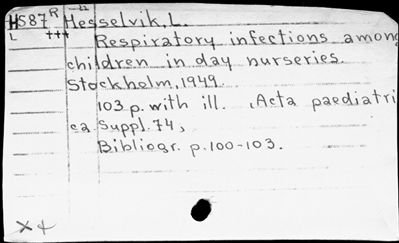 H587 R Hesselvik, L.
L +++ Respiratory infections among
children in day nurseries.
Stockholm, 1949.
103 p. with ill. (Acta paediatri
ca Suppl. 74,
Bibliogr. p. 100-103.